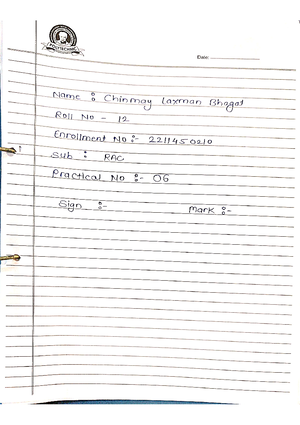 POLYTECHNIC
Date:
Name : Chinmay Laxman Bhagat
Roll No - 12
Enrollment No :- 2211450210
Sub : RAC
Practical No :- 06
Sign :-
Mark :-